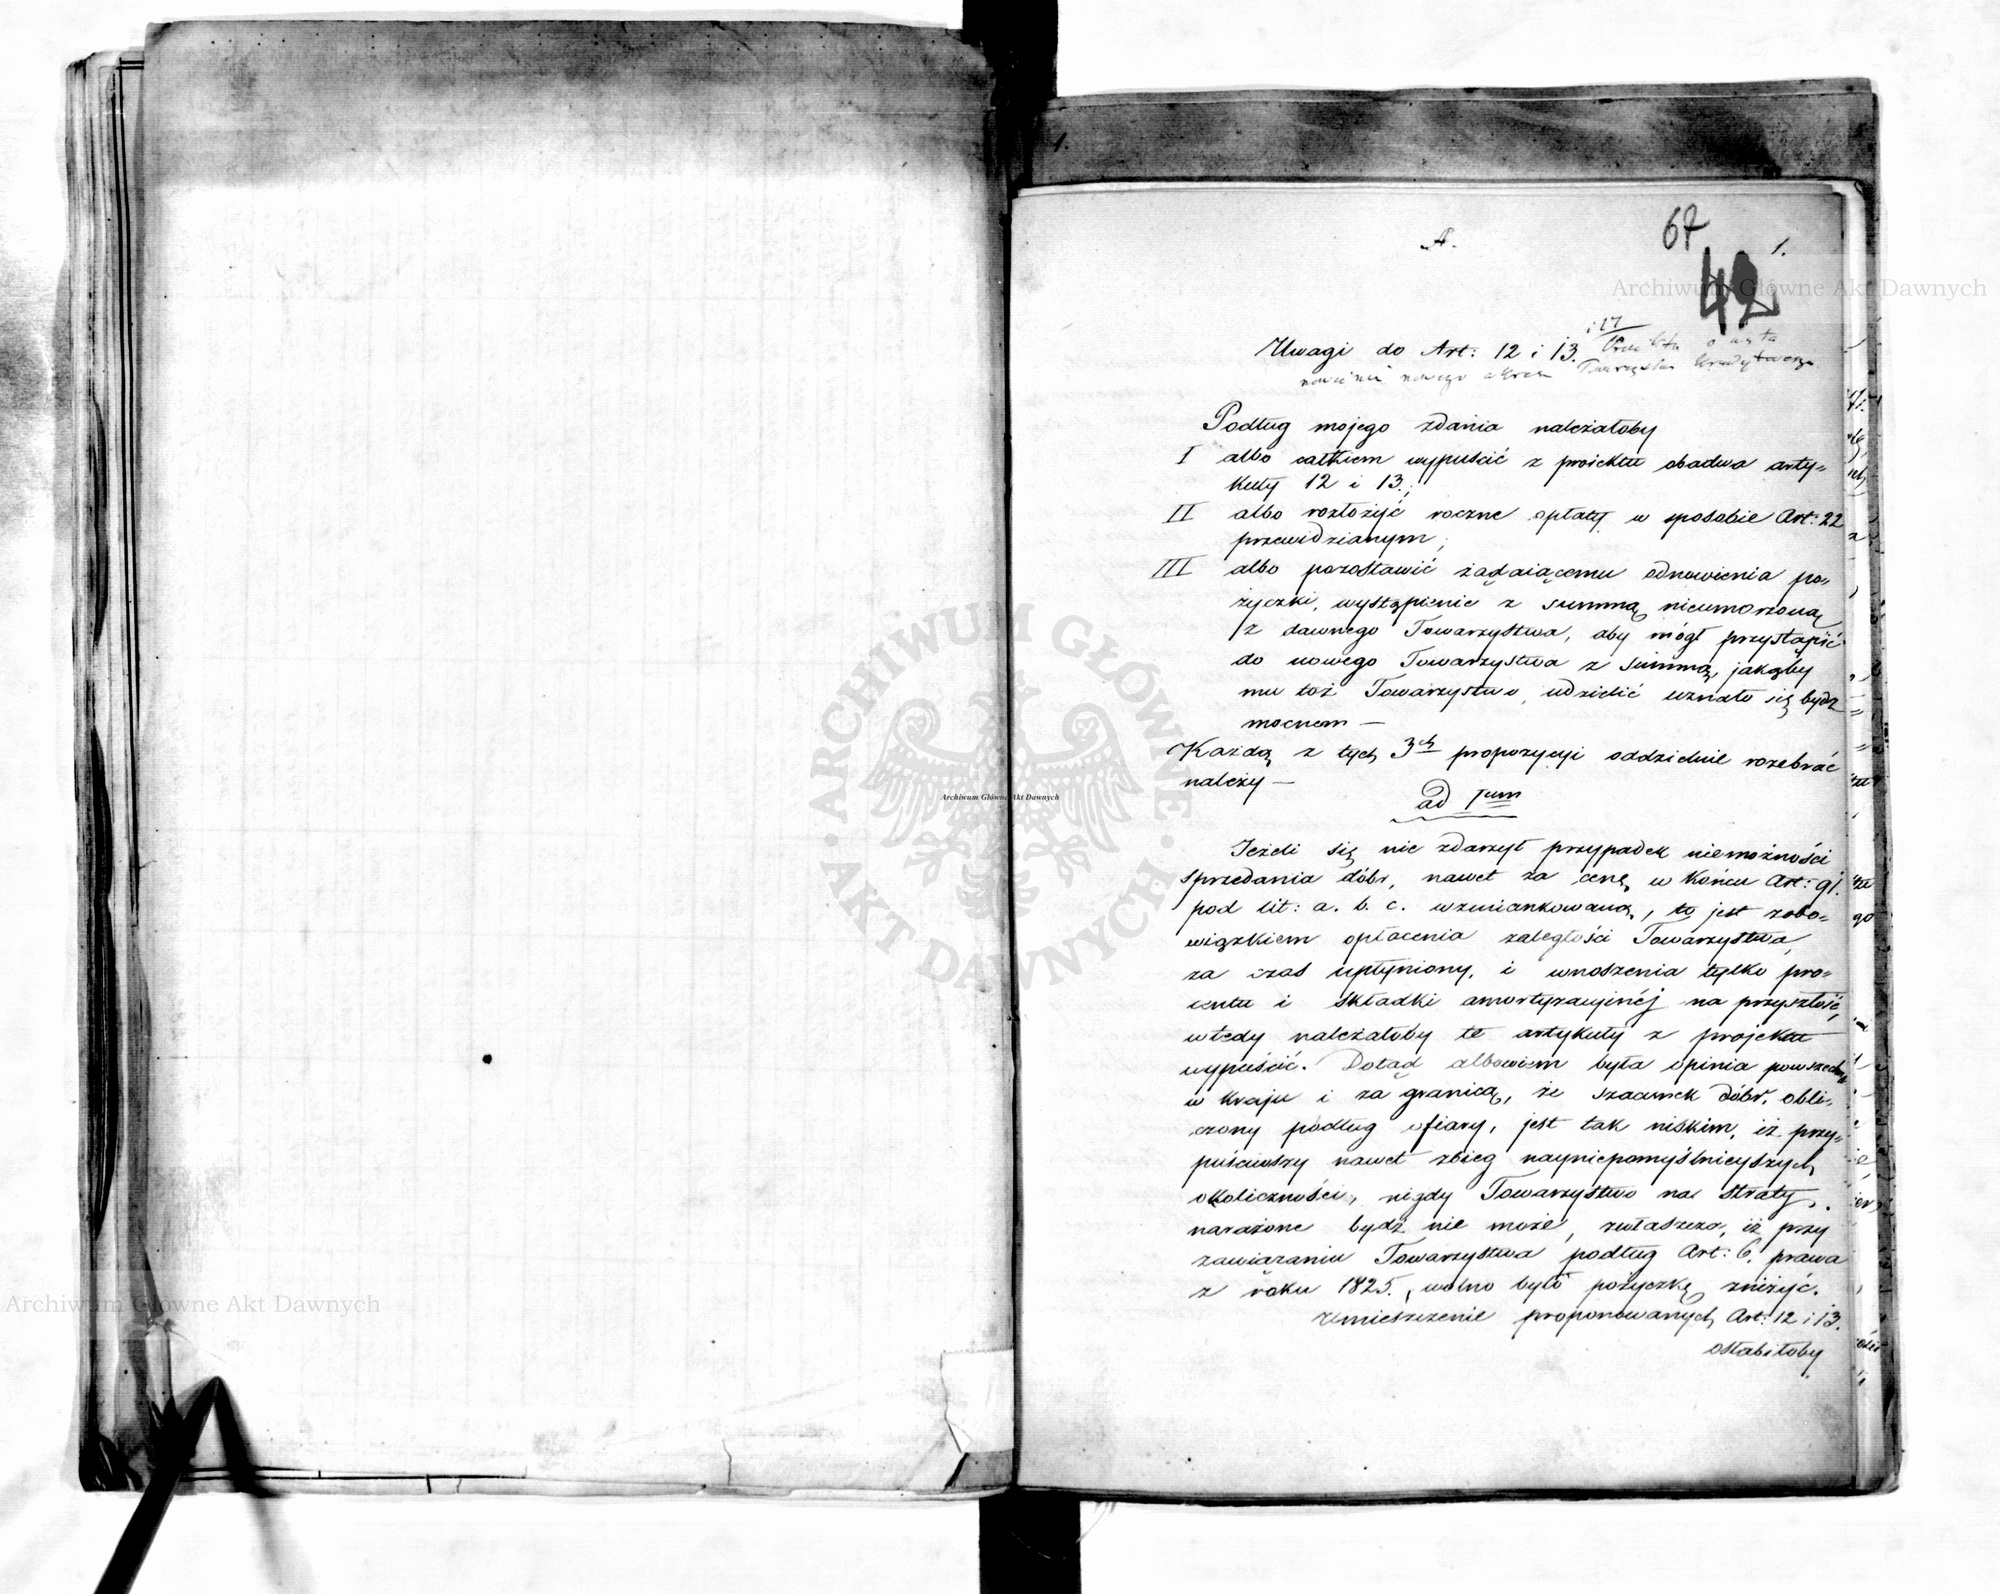 1.
A.
67
42
1.
i 17
Uwagi do Art: 12 i 13. Projektu
nowego okresu Towarzystwa Kredytowego
Podług mojego zdania należałoby
I albo całkiem wypuścić z proiektu obadwa arty=
kuły 12 i 13.;
II albo rozłożyć roczne opłaty w sposobie Art: 22
przewidzianym;
III albo pozostawić żądaiącemu odnowienia po=
życzki, wystąpienie z summą nieumorzoną
z dawnego Towarzystwa, aby mógł przystąpić
do nowego Towarzystwa z summą, jakąby
mu toż Towarzystwo udzielić uznało się bydz
mocnem —
Każdą z tych 3ch propozycyi oddzielnie rozebrać
należy —
ad Ium
Jeżeli się nie zdarzył przypadek niemożności
sprzedania dóbr, nawet za cenę w końcu Art: 91.
pod lit: a. b. c. wzmiankowaną, to jest zobo=
wiązkiem opłacenia zaległości Towarzystwa
za czas upłyniony, i wnoszenia tylko pro=
centu i składki amortyzacyjnéj na przyszłość,
wtedy należałoby te artykuły z projektu
wypuścić. Dotąd albowiem była opinia powszechna
w kraju i za granicą, że szacunek dóbr, obli=
czony podług ofiary, jest tak niskim, iż przy=
puściwszy nawet zbieg nayniepomyślnieyszych
okoliczności, nigdy Towarzystwo na straty
narażone bydź nie może, zwłaszcza, iż przy
zawiązaniu Towarzystwa podług Art: 6. prawa
z roku 1825., wolno było pożyczkę zniżyć.
Umieszczenie proponowanych Art: 12 i 13.
osłabiłoby
Archiwum Główne Akt Dawnych
ARCHIWUM GŁÓWNE AKT DAWNYCH
Archiwum Główne Akt Dawnych
Archiwum Główne Akt Dawnych